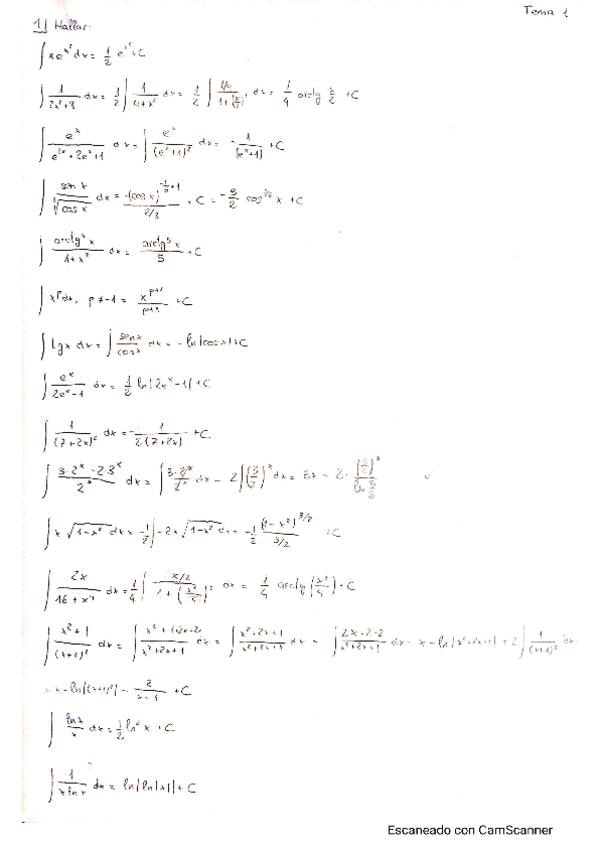 Tema 1
1] Hallar.
∫ x e^{x²} dx = 1/2 e^{x²} + C
dx = 1/2 ∫ 1/(4+x²) dx = 1/2 dx = 1/4 arctg x/2 + C
∫ e^x/(e^{2x}+2e^x+1) dx = ∫ e^x/(e^x+1)² dx = -1/(e^x+1) + C
∫ sen x/∛cos x dx = -(cos x)^{-1/3+1}/(2/3) + C = -3/2 cos^{2/3} x + C
∫ arctg⁴ x/(1+x²) dx = arctg⁵ x/5 + C
∫ x^p dx, p ≠ -1 = x^{p+1}/(p+1) + C
∫ tg x dx = ∫ sen x/cos x dx = - ln|cos x| + C
∫ e^x/(2e^x-1) dx = 1/2 ln|2e^x-1| + C
∫ 1/(7+2x)² dx = - 1/(2(7+2x)) + C
∫ (3·2^x - 2·3^x)/2^x dx = ∫ 3·2^x/2^x dx - 2∫(3/2)^x dx = 3x - 2· (3/2)^x/ln 3/2
∫ x √(1-x²) dx = -1/2 ∫ -2x √(1-x²) dx = -1/2 (1-x²)^{3/2}/(3/2) + C
∫ 2x/(16+x⁴) dx = 1/4 ∫ dx = 1/4 arctg (x²/4) + C
∫ (x²+1)/(x+1)² dx = ∫ (x²+1+2x-2x)/(x²+2x+1) dx = ∫ (x²+2x+1)/(x²+2x+1) dx - ∫ (2x+2-2)/(x²+2x+1) dx = x - ln|x²+2x+1| + 2∫ 1/(x+1)² dx
= x - ln|(x+1)²| - + C
∫ ln x/x dx = 1/2 ln² x + C
∫ 1/(x ln x) dx = ln|ln|x|| + C
Escaneado con CamScanner